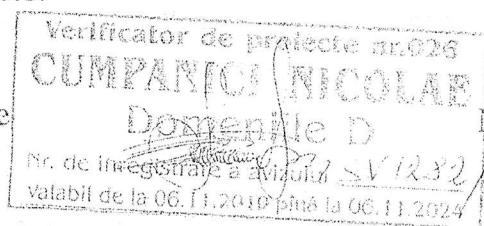 Verificator de proiecte nr.026
CUMPANICI NICOLAE
Domeniile D
Nr. de înregistrare a avizului SV 1232
valabil de la 06.11.2019 pînă la 06.11.2024